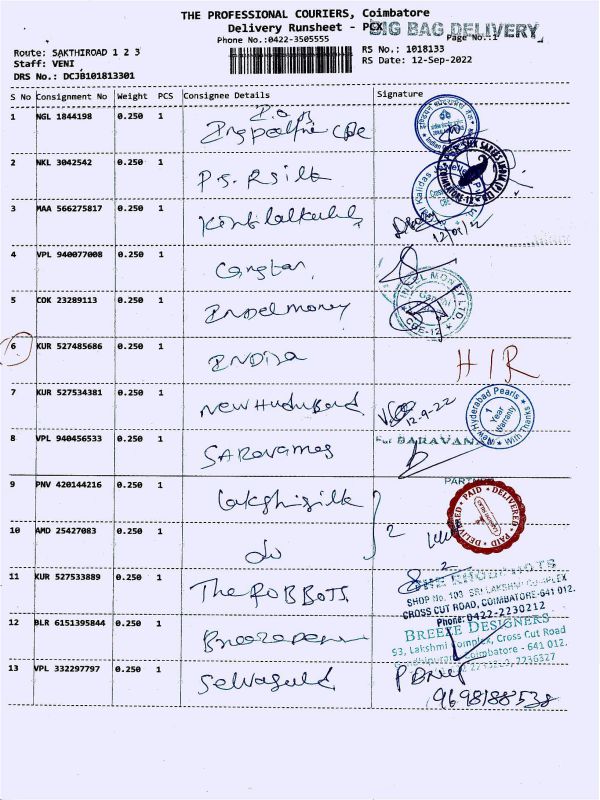 THE PROFESSIONAL COURIERS, Coimbatore
Delivery Runsheet - PCX
BIG BAG DELIVERY
Phone No.:0422-3505555
Page No.:1
Route: SAKTHIROAD 1 2 3
RS No.: 1018133
Staff: VENI
RS Date: 12-Sep-2022
DRS No.: DCJB101813301
S No Consignment No Weight PCS Consignee Details Signature
1 NGL 1844198 0.250 1
2 NKL 3042542 0.250 1 P.S.R silk
3 MAA 566275817 0.250 1
12/09/22
4 VPL 940077008 0.250 1
5 COK 23289113 0.250 1 Indelmoney
INDEL MONEY LTD.
CBE-12
6 KUR 527485686 0.250 1 INDIA H/R
7 KUR 527534381 0.250 1 New Hyderabad 12-9-22
New Hyderabad Pearls
1 Year Warranty
With Thanks
8 VPL 940456533 0.250 1 SARavanas
For SARAVANA
9 PNV 420144216 0.250 1 Lakshisilk
PAID DELIVERED PAID DELIVERED
10 AMD 25427083 0.250 1 do 2
11 KUR 527533889 0.250 1 The ROBBOTS
SHOP No. 103 SRI LAKSHMI COMPLEX
CROSS CUT ROAD, COIMBATORE-641 012.
Phone: 0422-2230212
12 BLR 6151395844 0.250 1
BREEZE DESIGNERS
93, Lakshmi Complex, Cross Cut Road
Coimbatore - 641 012.
2236327
13 VPL 332297797 0.250 1 Selvaguld
9698188538